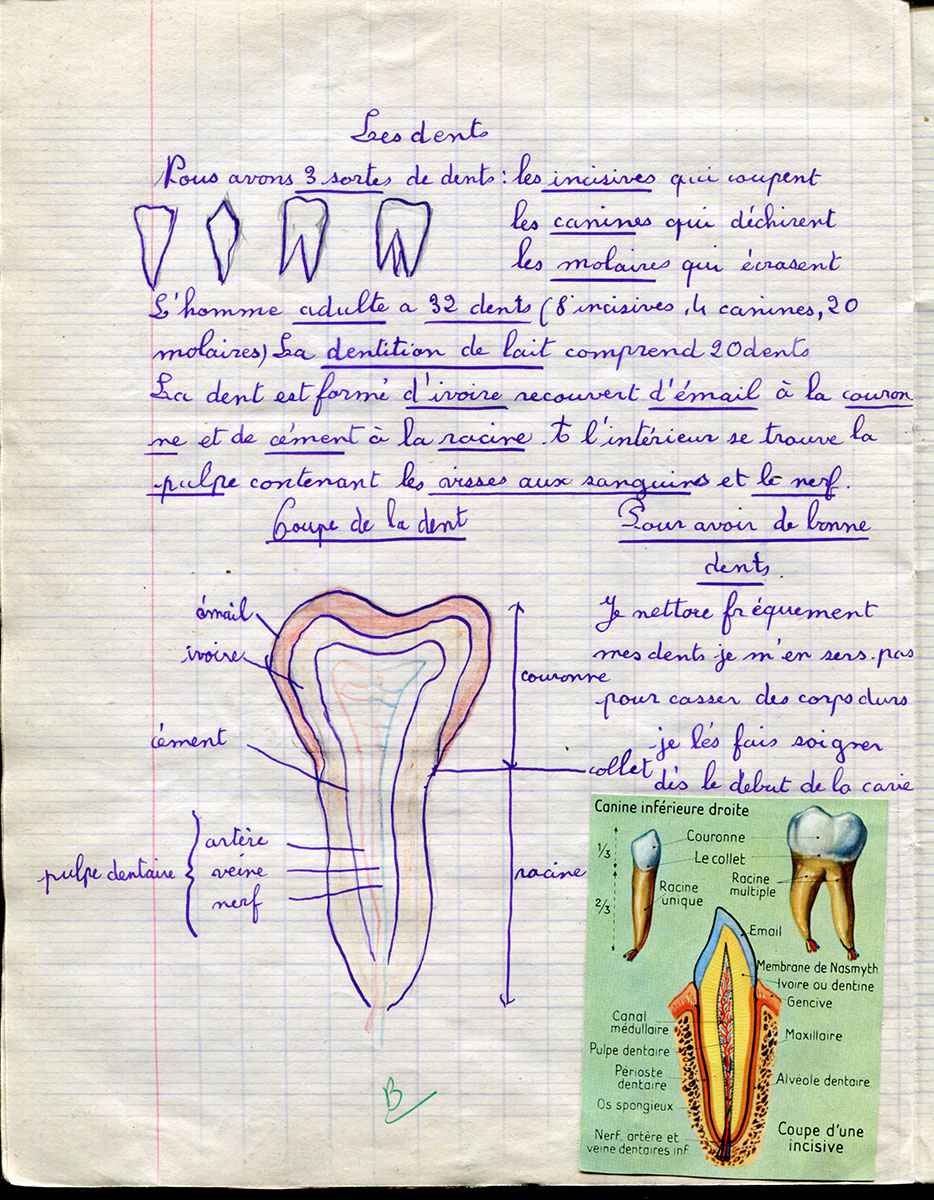 Les dents
Nous avons 3 sortes de dents : les incisives qui coupent
les canines qui déchirent
les molaires qui écrasent
L'homme adulte a 32 dents (8 incisives, 4 canines, 20
molaires) La dentition de lait comprend 20 dents
La dent est formé d'ivoire recouvert d'émail à la couron
ne et de cément à la racine. A l'intérieur se trouve la
pulpe contenant les visses aux sanguins et le nerf.
Coupe de la dent
émail
ivoire
cément
pulpe dentaire
artère
veine
nerf
couronne
collet
racine
Pour avoir de bonne
dents.
Je nettore fréquement
mes dents je m'en sers pas
pour casser des corps durs
je lés fais soigner
dès le debut de la carie
Canine inférieure droite
1/3
2/3
Couronne
Le collet
Racine
unique
Racine
multiple
Email
Membrane de Nasmyth
Ivoire ou dentine
Gencive
Canal
médullaire
Maxillaire
Pulpe dentaire
Périoste
dentaire
Alvéole dentaire
Os spongieux
Nerf, artère et
veine dentaires inf
Coupe d'une
incisive
B